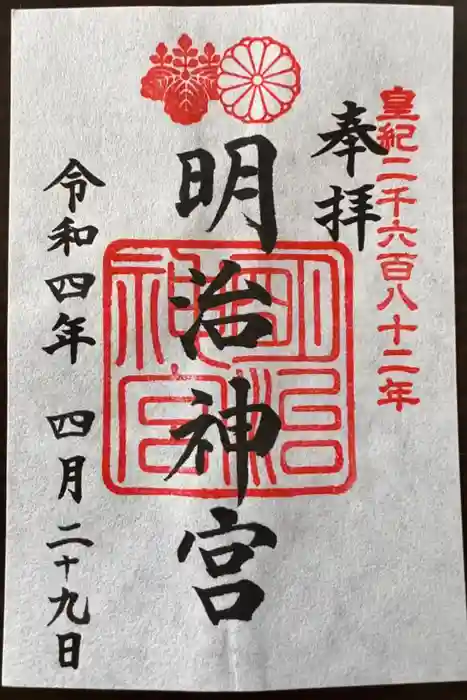 皇紀二千六百八十二年
奉拝
明治神宮
明治
神宮
令和四年 四月二十九日